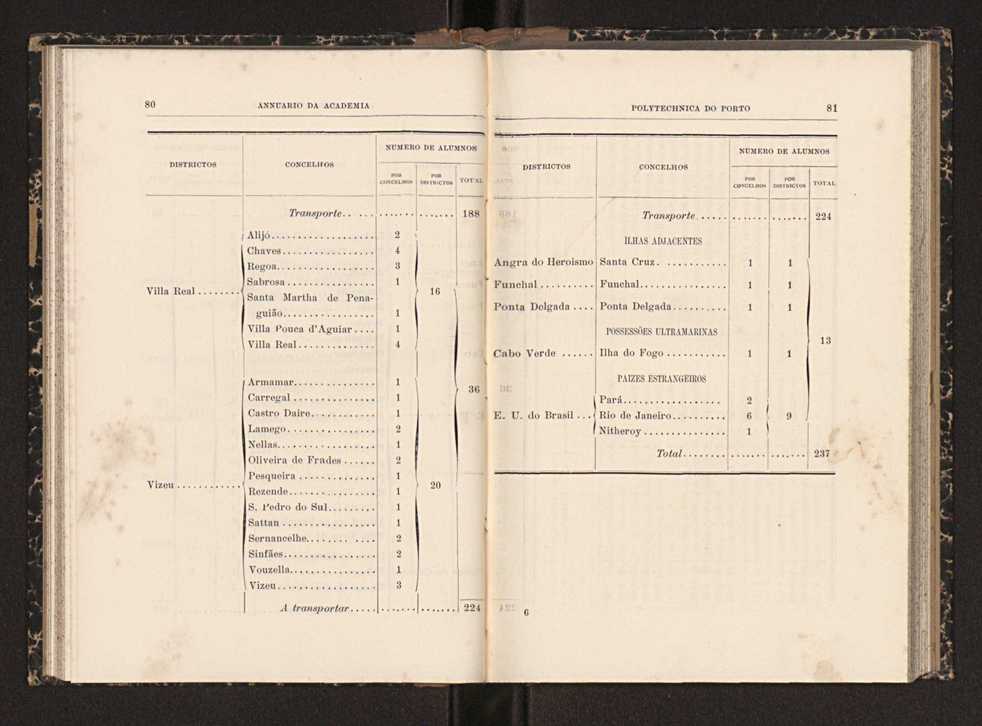 80 ANNUARIO DA ACADEMIA
DISTRICTOS CONCELHOS NUMERO DE ALUMNOS
POR CONCELHOS POR DISTRICTOS TOTAL
Transporte 188
Villa Real 16
Alijó 2
Chaves 4
Regoa 3
Sabrosa 1
Santa Martha de Pena-
guião 1
Villa Pouca d'Aguiar 1
Villa Real 4
36
Vizeu 20
Armamar 1
Carregal 1
Castro Daire 1
Lamego 2
Nellas 1
Oliveira de Frades 2
Pesqueira 1
Rezende 1
S. Pedro do Sul 1
Sattan 1
Sernancelhe 2
Sinfães 2
Vouzella 1
Vizeu 3
A transportar 224
POLYTECHNICA DO PORTO 81
DISTRICTOS CONCELHOS NUMERO DE ALUMNOS
POR CONCELHOS POR DISTRICTOS TOTAL
Transporte 224
ILHAS ADJACENTES
Angra do Heroismo Santa Cruz 1 1
Funchal Funchal 1 1
Ponta Delgada Ponta Delgada 1 1
POSSESSÕES ULTRAMARINAS
13
Cabo Verde Ilha do Fogo 1 1
PAIZES ESTRANGEIROS
Pará 2
E. U. do Brasil Rio de Janeiro 6 9
Nitheroy 1
Total 237
6